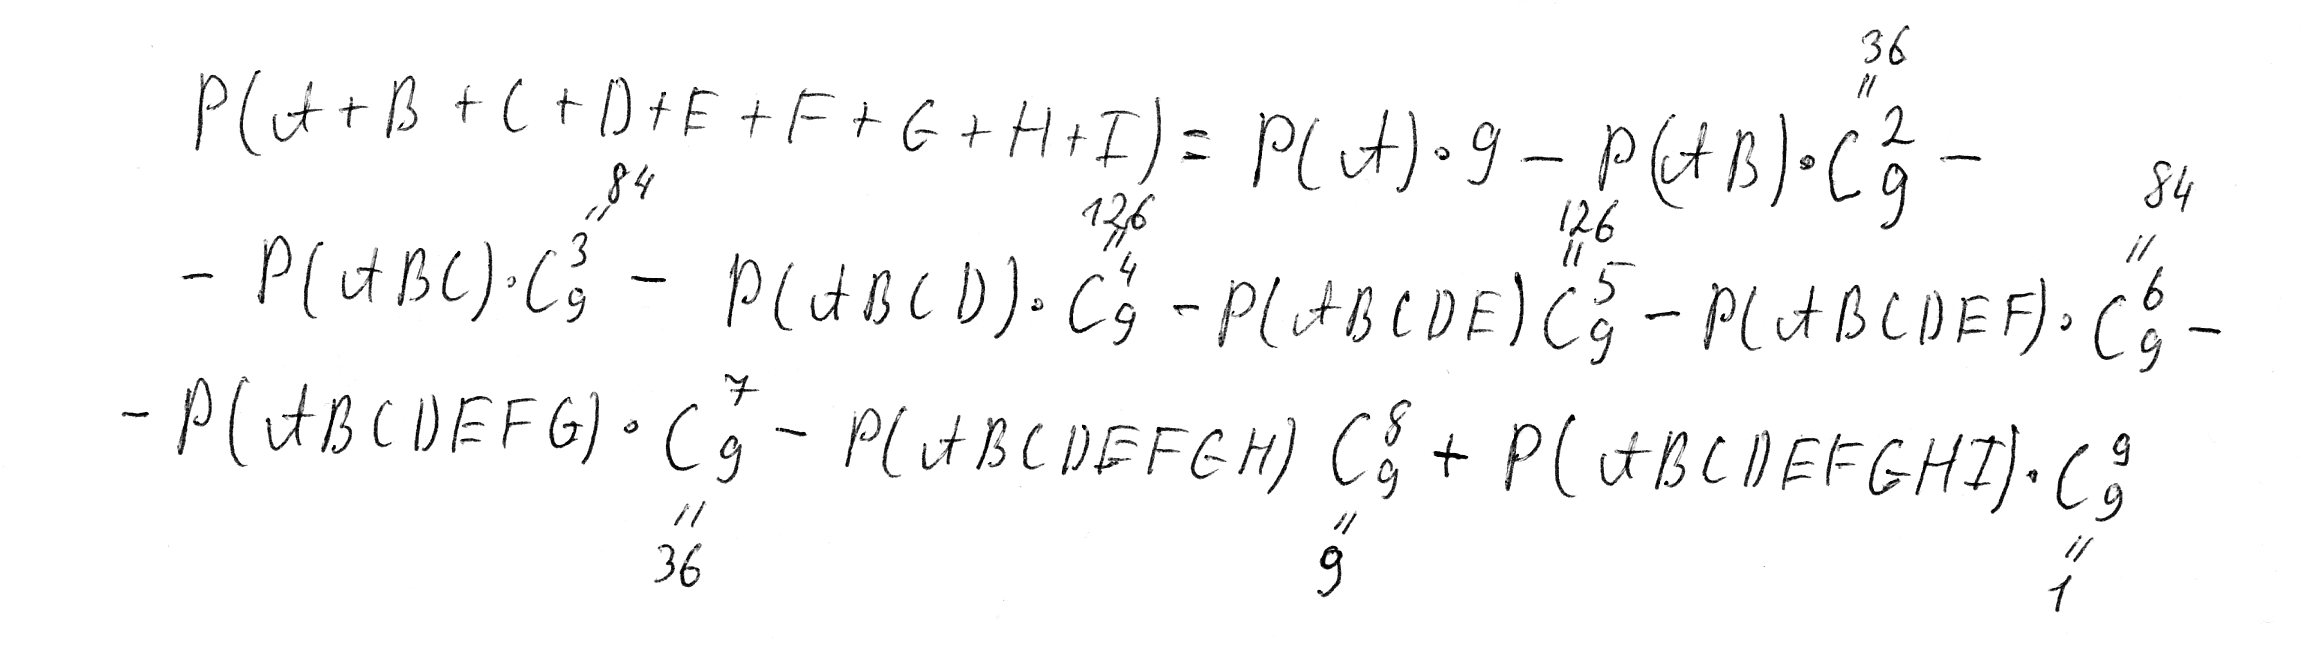 36
"
P(A+B+C+D+E+F+G+H+I) = P(A)·9 - P(AB)·C₉² -
84 126 126 84
" " " "
- P(ABC)·C₉³ - P(ABCD)·C₉⁴ - P(ABCDE)C₉⁵ - P(ABCDEF)·C₉⁶ -
- P(ABCDEFG)·C₉⁷ - P(ABCDEFGH) C₉⁸ + P(ABCDEFGHI)·C₉⁹
" " "
36 9 1